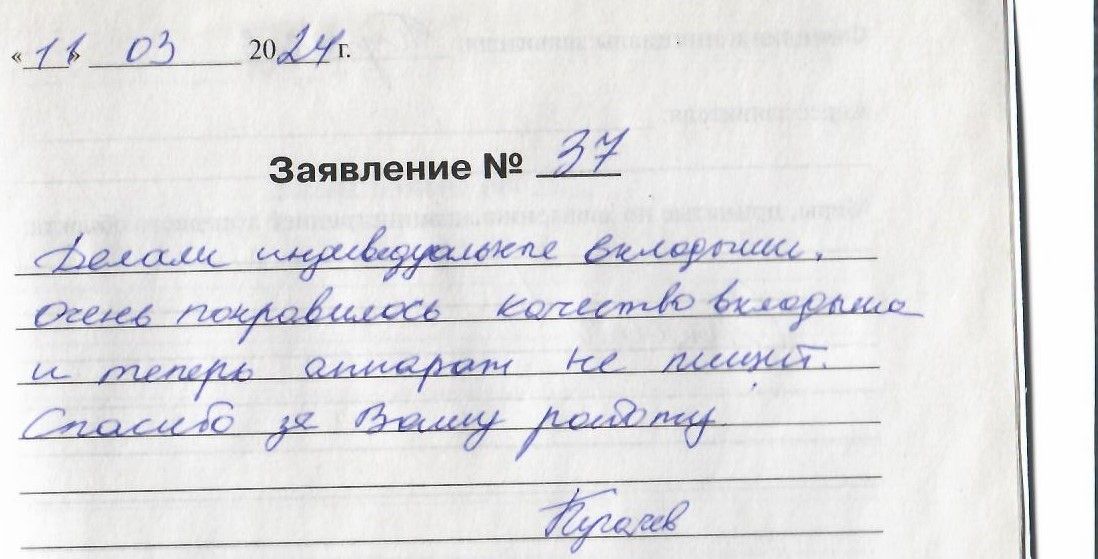 «11» 03 2024 г.
Заявление № 37
Делали индивидуальные вкладыши.
очень понравилось качество вкладыша
и теперь аппарат не пищит.
Спасибо за Вашу работу